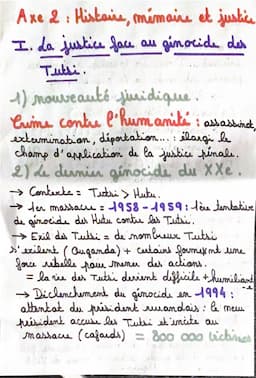 Axe 2 : Histoire, mémoire et justice
I. La justice face au génocide des
Tutsi.
1) nouveauté juridique.
Crime contre l'humanité : assassinat,
extermination, déportation... : élargi le
champ d'application de la justice pénale.
2) Le dernier génocide du XXe.
→ Contexte = Tutsi > Hutu.
→ 1er massacre = 1958-1959 : 1ère tentative
de génocide des Hutu contre les Tutsi.
→ Exil des Tutsi = de nombreux Tutsi
s'exilent (Ouganda) + certains forment une
force rebelle pour mener des actions.
= la vie des Tutsi devient difficile + humiliante
→ Déclenchement du génocide en 1994 :
attentat du président rwandais : le
président accuse les Tutsi et incite au
massacre (cafards) = 800 000 victimes